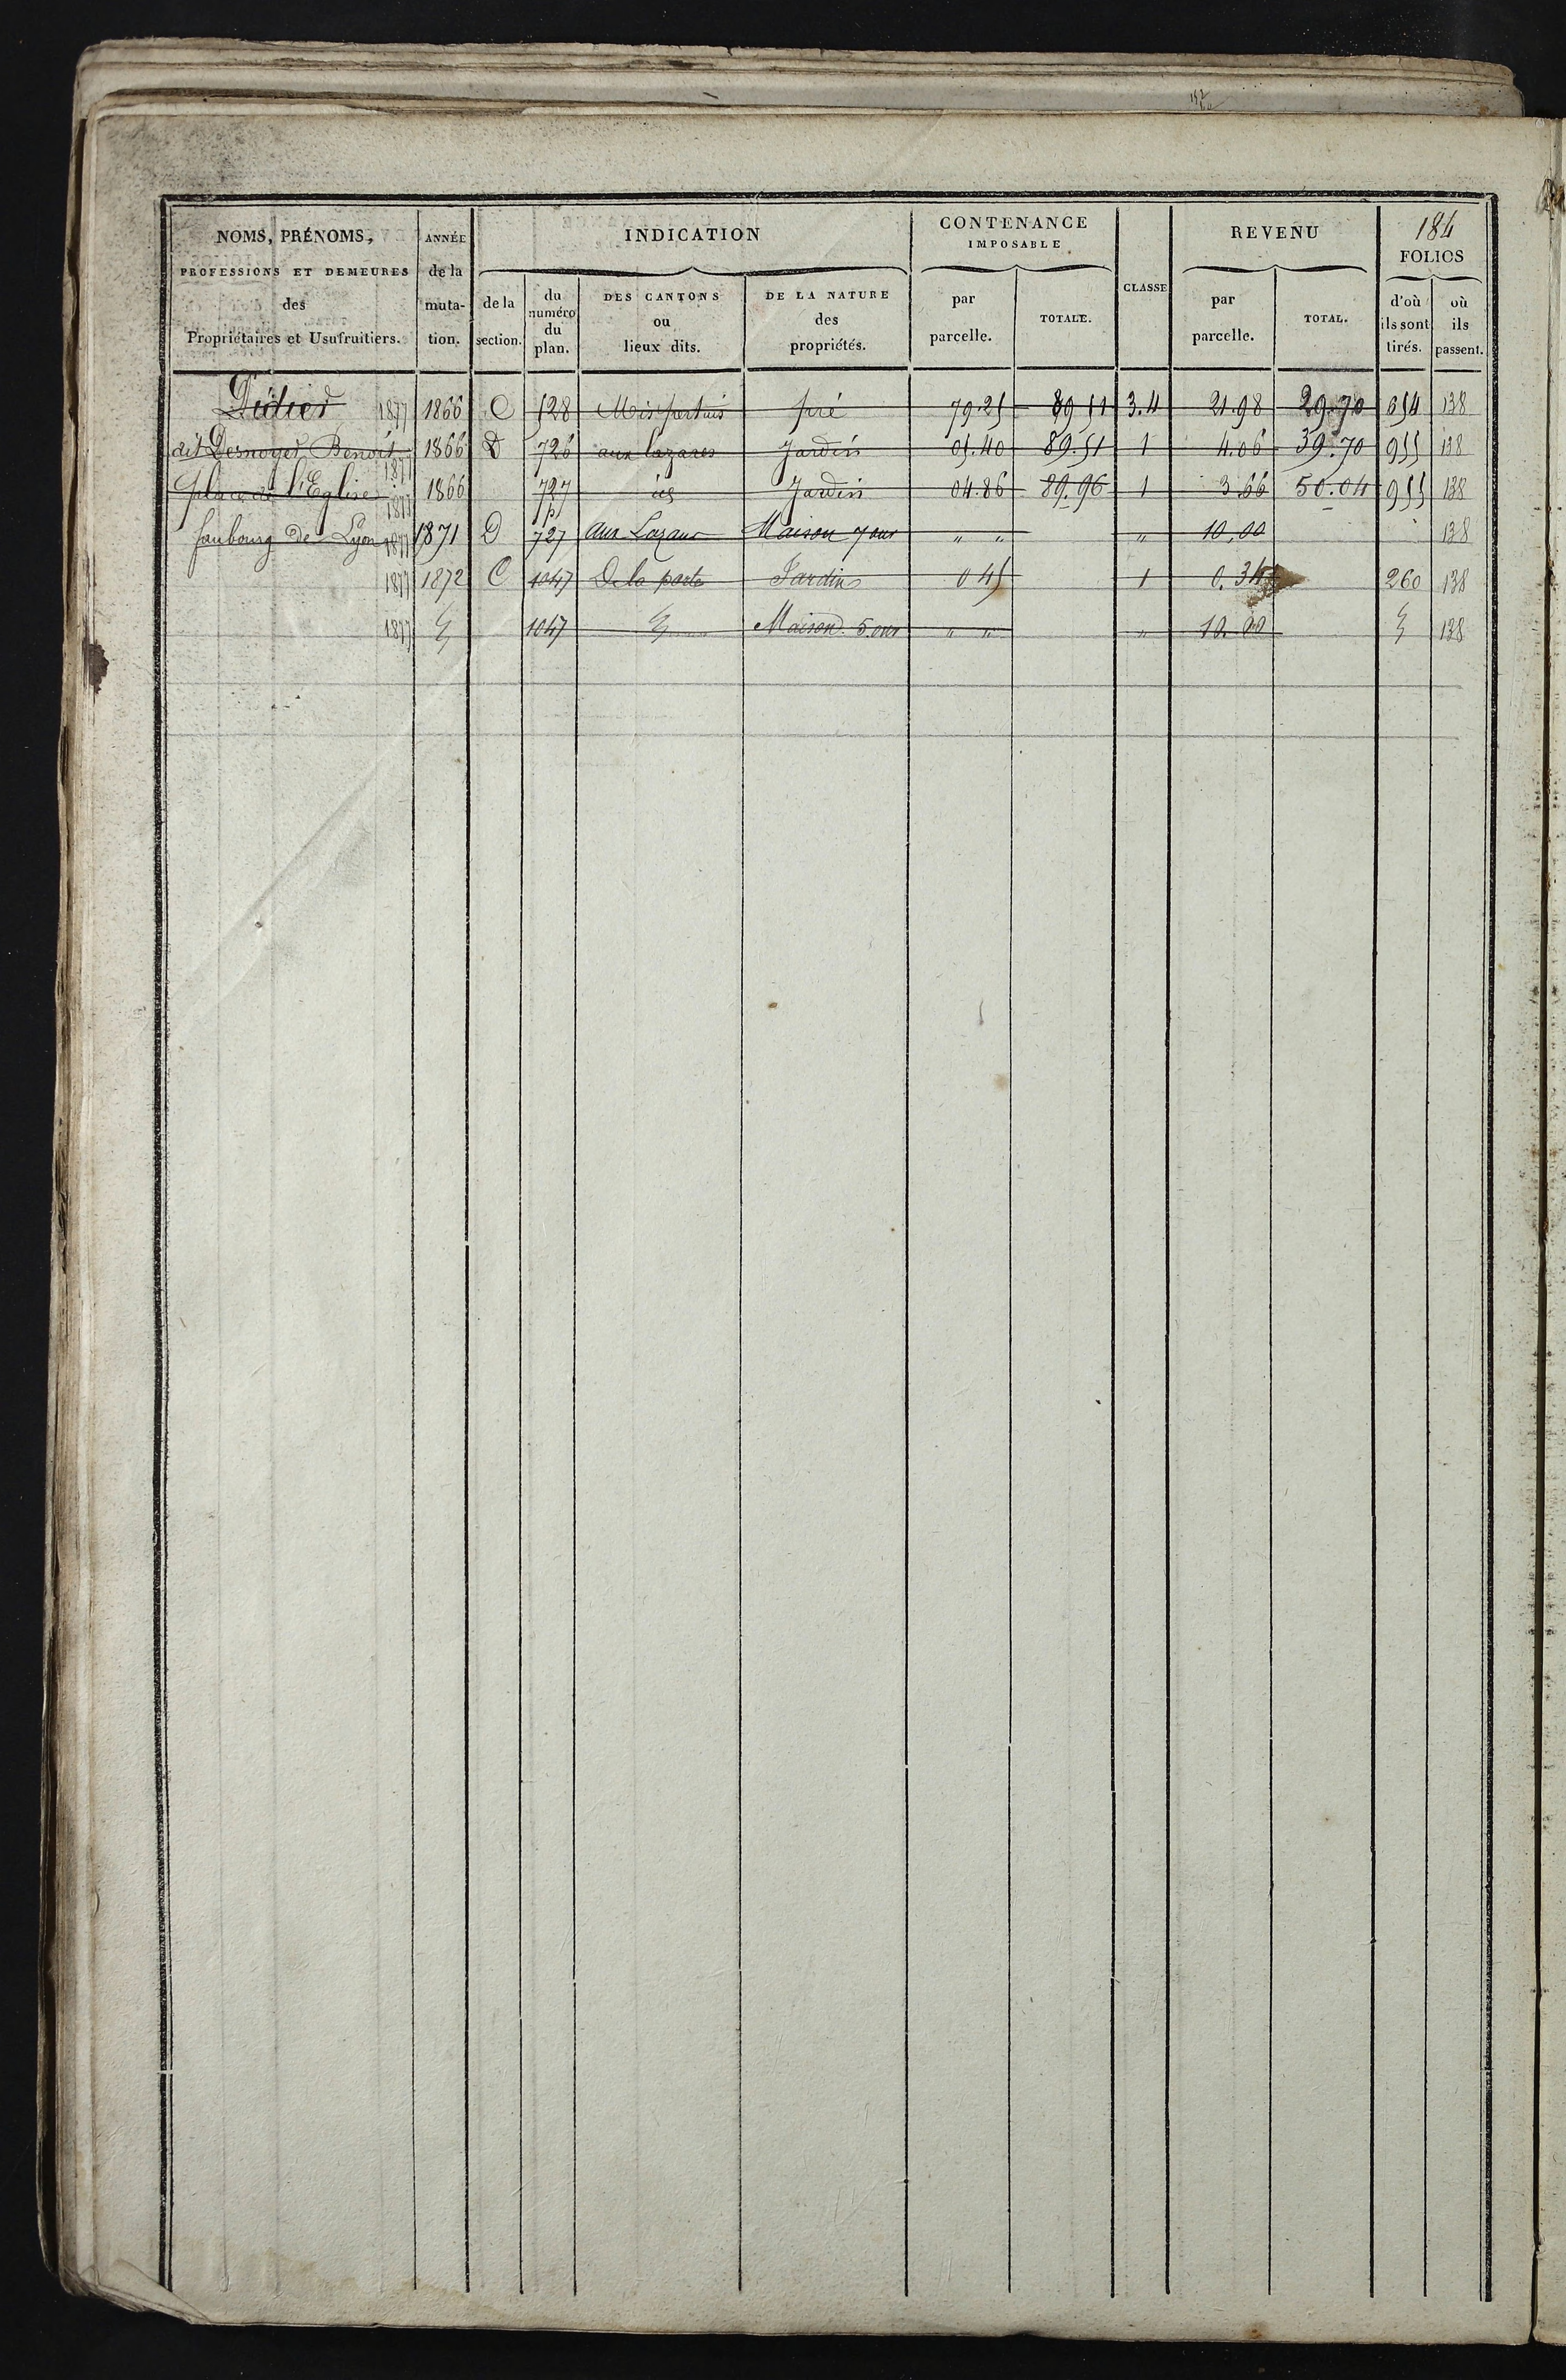 184
NOMS, PRÉNOMS, PROFESSIONS ET DEMEURES des Propriétaires et Usufruitiers.
ANNÉE de la mutation.
INDICATION
de la section.
du numéro du plan.
DES CANTONS ou lieux dits.
DE LA NATURE des propriétés.
CONTENANCE IMPOSABLE
par parcelle.
TOTALE.
CLASSE
REVENU
par parcelle.
TOTAL.
FOLIOS
d'où ils sont tirés.
où ils passent.
Didier 1877 1866 C 528 pré 79.25 89 51 3.4 21.98 29.70 654 138
dit Desnoyer, Benoit 1877 1866 D 726 aux lazares Jardin 05.40 89.51 1 4.06 39.70 955 138
place de l'Eglise 1877 1866 727 id Jardin 04.86 89.96 1 3.66 50.04 955 138
faubourg de Lyon 1877 1871 D 727p aux Lazares Maison 7 ouv " " " 10.00 138
1877 1872 C 1047 De la porte Jardin 0 45 1 0.34 260 138
1877 1047 Maison 5 ouv " " " 10.00 138